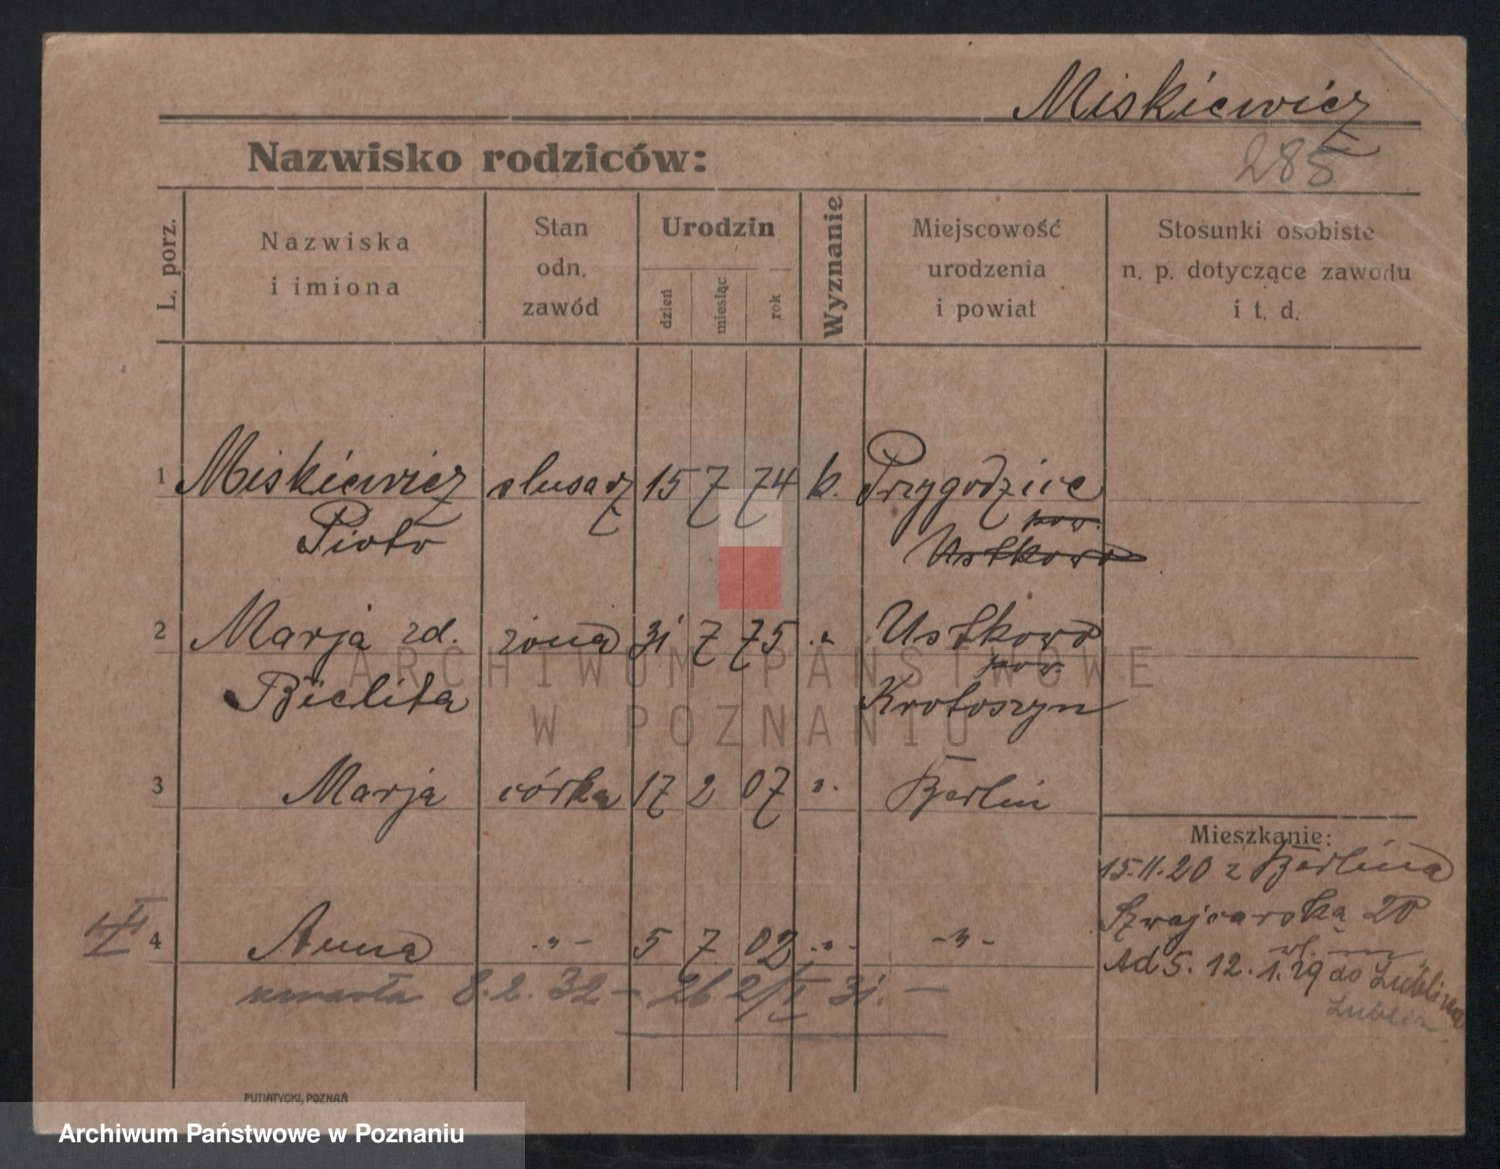 Miskiewicz
Nazwisko rodziców:
285
L. porz.
Nazwiska
i imiona
Stan
odn.
zawód
Urodzin
dzień
miesiąc
rok
Wyznanie
Miejscowość
urodzenia
i powiat
Stosunki osobiste
n. p. dotyczące zawodu
i t. d.
1 Miskiewicz ślusarz 15 7 74 k. Przygodzice
Piotr pow.
Ustkowo
2 Marja zd. żona 31 7 75 „ Ustkowo
pow.
Bielita Krotoszyn
3 Marja córka 17 2 07 „ Berlin
Mieszkanie:
15.11.20 z Berlina
Szwajcarska 20
4 Anna -„- 5 7 02 -„- -„-
Ad 5. 12. 1. 29 do Lublińca
zmarła 8. 2. 32 - 26 2/II 31. -
PUTIATYCKI, POZNAŃ
ARCHIWUM PAŃSTWOWE
W POZNANIU
Archiwum Państwowe w Poznaniu